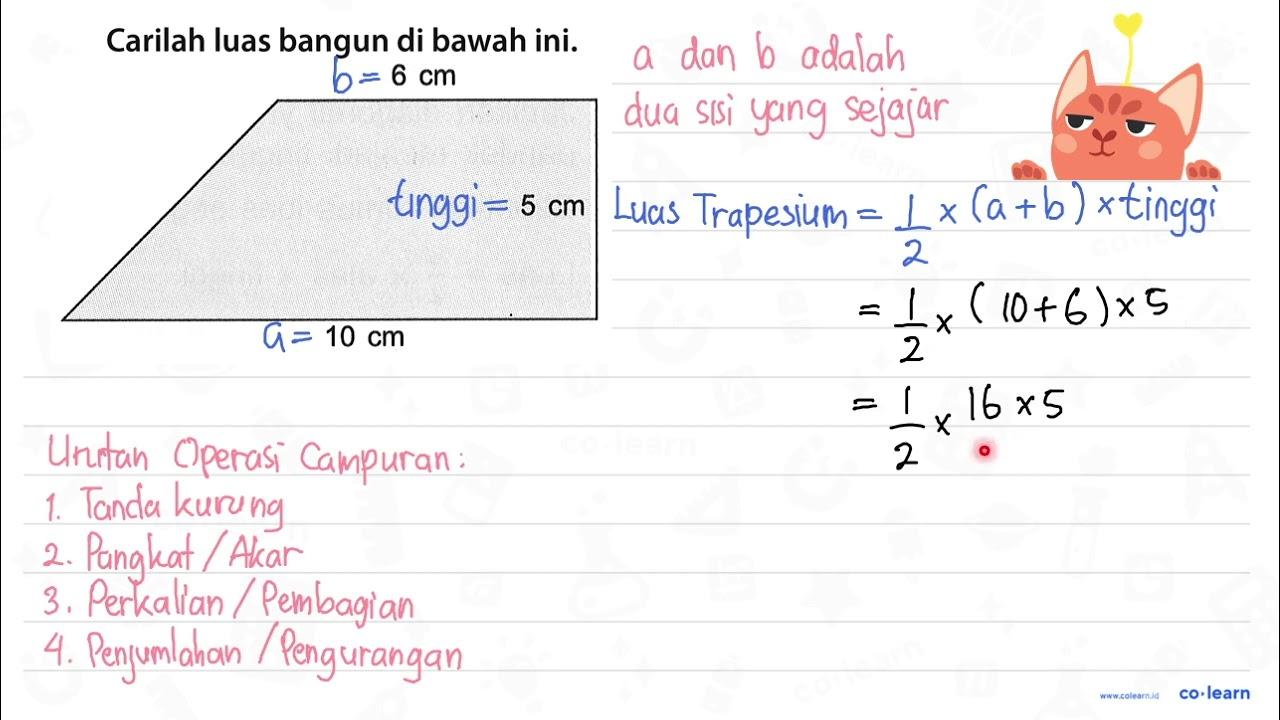 Carilah luas bangun di bawah ini.
b = 6 cm
tinggi = 5 cm
a = 10 cm
a dan b adalah
dua sisi yang sejajar
Luas Trapesium = 1/2 × (a + b) × tinggi
= 1/2 × (10 + 6) × 5
= 1/2 × 16 × 5
Urutan Operasi Campuran :
1. Tanda kurung
2. Pangkat / Akar
3. Perkalian / Pembagian
4. Penjumlahan / Pengurangan
www.colearn.id co·learn